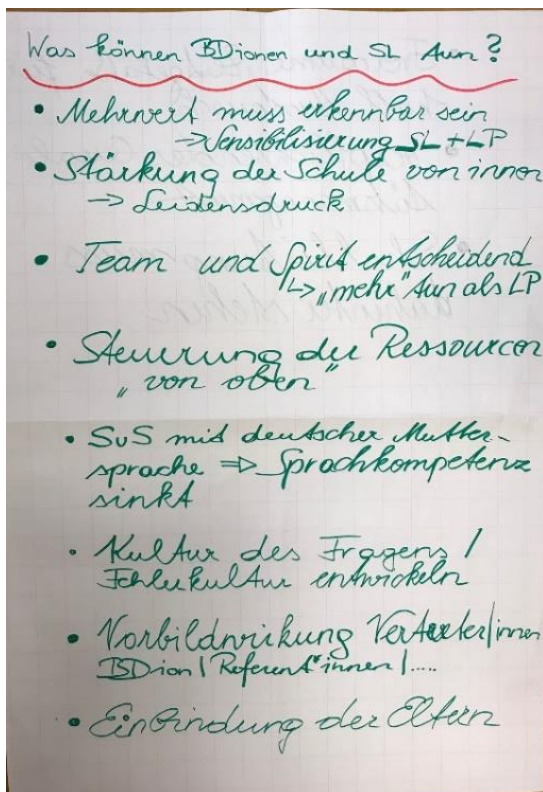 Was können BDionen und SL tun?
• Mehrwert muss erkennbar sein
→ Sensibilisierung SL + LP
• Stärkung der Schule von innen
→ Leidensdruck
• Team und Spirit entscheidend
↳ „mehr" tun als LP
• Steuerung der Ressourcen
„von oben"
• SuS mit deutscher Mutter-
sprache ⇒ Sprachkompetenz
sinkt
• Kultur des Fragens /
Fehlerkultur entwickeln
• Vorbildwirkung Vertreter/innen
BDion / Referent*innen / .....
• Einbindung der Eltern